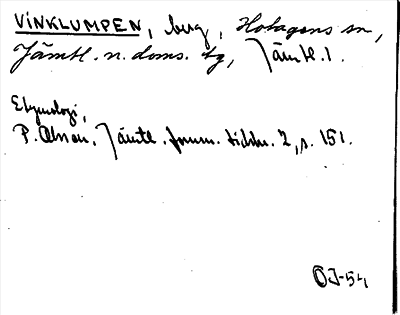 VINKLUMPEN, berg, Hotagens sn,
Jämtl. n. doms. tg, Jämtl. l.
Etymologi,
P. Olsson, Jämtl. fornm. tidskr. 2, s. 151.
ÖJ-54